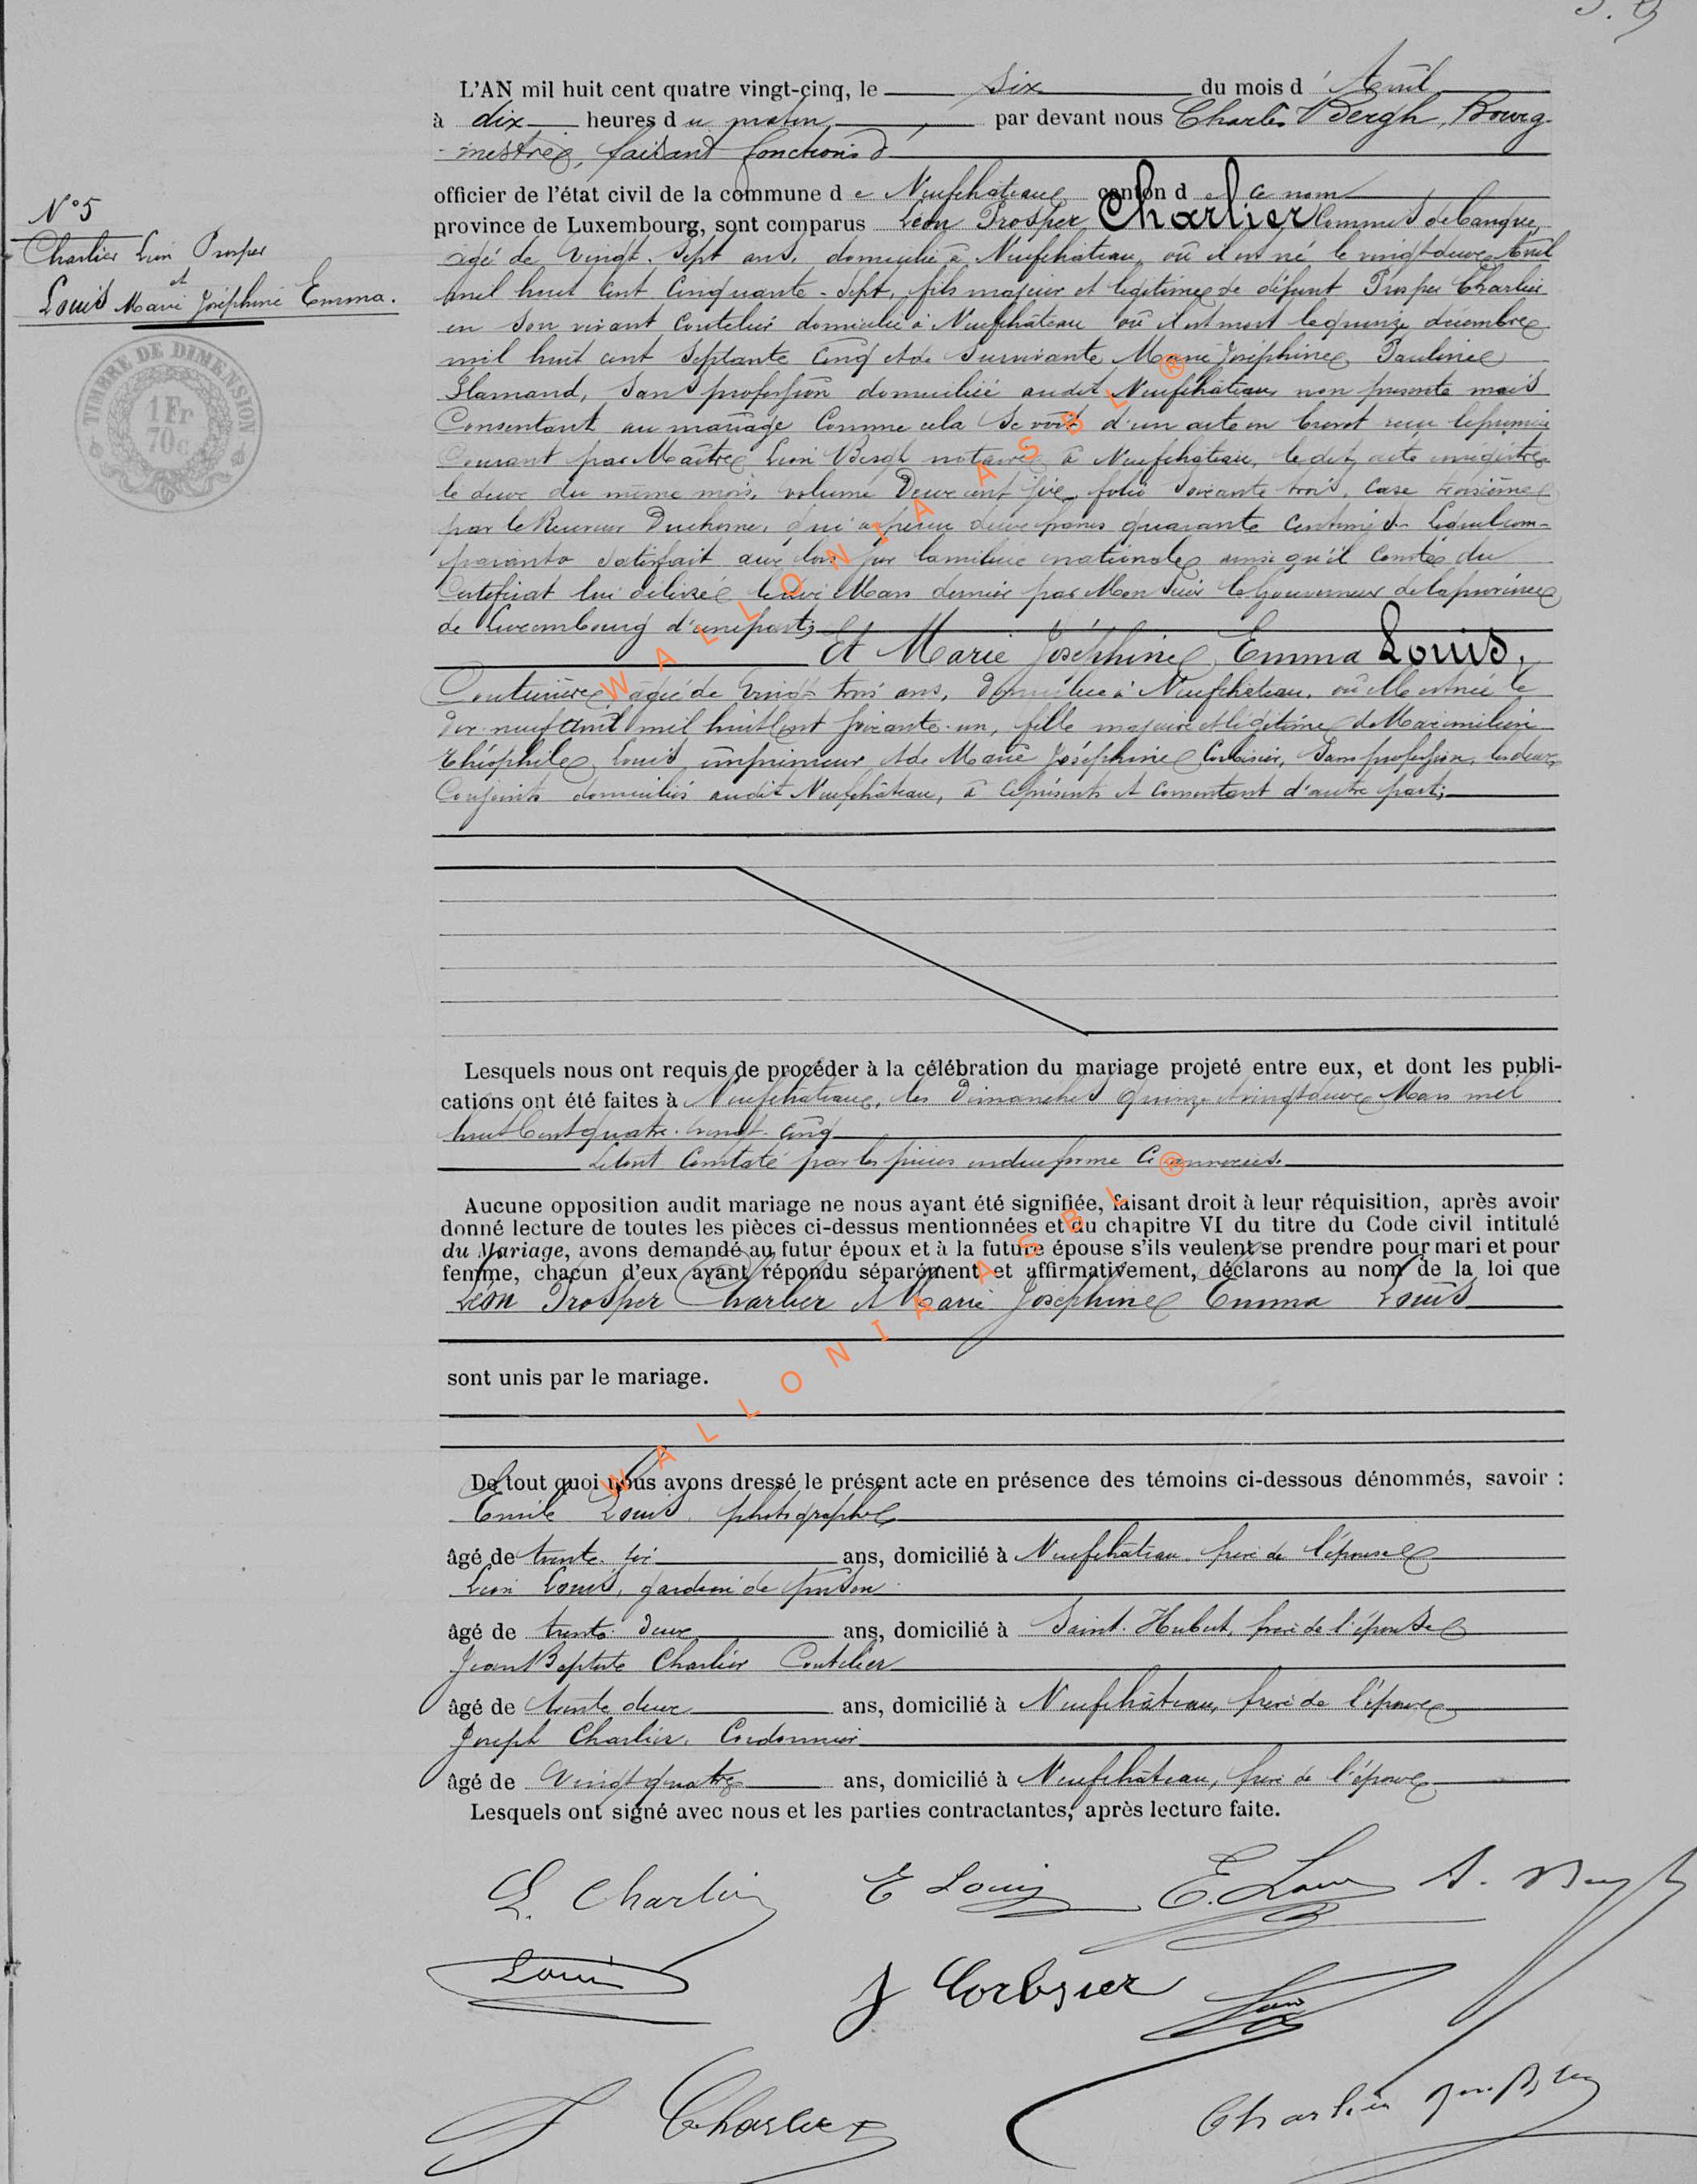 L'AN mil huit cent quatre vingt-cinq, le six du mois d'Avril
à dix heures du matin, par devant nous Charles Bergh, Bourg-
mestre, faisant fonctions d
officier de l'état civil de la commune de Neufchâteau canton de ce nom
province de Luxembourg, sont comparus Léon Prosper Charlier Commis de banque,
N° 5
Charlier Léon Prosper
et
Louis Marie Joséphine Emma.
TIMBRE DE DIMENSION
1 Fr
70c
âgé de vingt-sept ans, domicilié à Neufchâteau, où il est né le vingt deux Avril
mil huit cent cinquante-sept, fils majeur et légitime de défunt Prosper Charlier
en son vivant coutelier domicilié à Neufchâteau où il est mort le quinze décembre
mil huit cent septante cinq et de survivante Marie Joséphine Pauline
Flamand, sans profession domiciliée audit Neufchâteau, non présente mais
Consentant au mariage comme cela se voit d'un acte en brevet reçu le premier
Courant par Maître Léon Bergh notaire à Neufchâteau, le dit acte enregistré
le deux du même mois, volume deux cent six, folio soixante trois, case troisième
par le Receveur Duchesne, qui a perçu deux francs quarante centimes. Lequel com-
parant a satisfait aux lois sur la milice nationale ainsi qu'il conste du
Certificat lui délivré le Mars dernier par Monsieur le Gouverneur de la province
de Luxembourg d'une part;
Et Marie Joséphine Emma Louis,
Couturière, âgée de vingt-trois ans, domiciliée à Neufchâteau, où elle est née le
dix-neuf Avril mil huit cent soixante-un, fille majeure et légitime de Maximilien
Théophile Louis imprimeur et de Marie Joséphine Corbisier, sans profession, les deux
Conjoints domiciliés audit Neufchâteau, à ce présents et consentant d'autre part;
Lesquels nous ont requis de procéder à la célébration du mariage projeté entre eux, et dont les publi-
cations ont été faites à Neufchâteau, les Dimanches quinze et vingt deux Mars mil
huit Cent quatre-vingt-cinq
le tout constaté par les pièces en due forme ci annexées.
Aucune opposition audit mariage ne nous ayant été signifiée, faisant droit à leur réquisition, après avoir
donné lecture de toutes les pièces ci-dessus mentionnées et du chapitre VI du titre du Code civil intitulé
du Mariage, avons demandé au futur époux et à la future épouse s'ils veulent se prendre pour mari et pour
femme, chacun d'eux ayant répondu séparément et affirmativement, déclarons au nom de la loi que
Léon Prosper Charlier et Marie Joséphine Emma Louis
sont unis par le mariage.
De tout quoi nous avons dressé le présent acte en présence des témoins ci-dessous dénommés, savoir :
Emile Louis, photographe
âgé de trente six ans, domicilié à Neufchâteau, frère de l'épouse
Léon Louis, gardien de prison
âgé de trente deux ans, domicilié à Saint-Hubert, frère de l'épouse
Jean Baptiste Charlier Coutelier
âgé de trente deux ans, domicilié à Neufchâteau, frère de l'époux
Joseph Charlier, Cordonnier
âgé de vingt quatre ans, domicilié à Neufchâteau, frère de l'époux
Lesquels ont signé avec nous et les parties contractantes, après lecture faite.
L. Charlier E Louis E. Louis
Louis J Corbisier
J Charlier Charlier
WALLONIA ASBL ®
WALLONIA ASBL ®